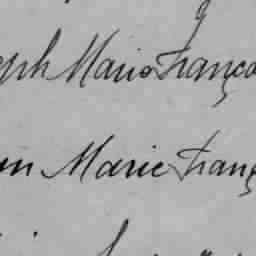 eph Marie Franço
en Marie Franç